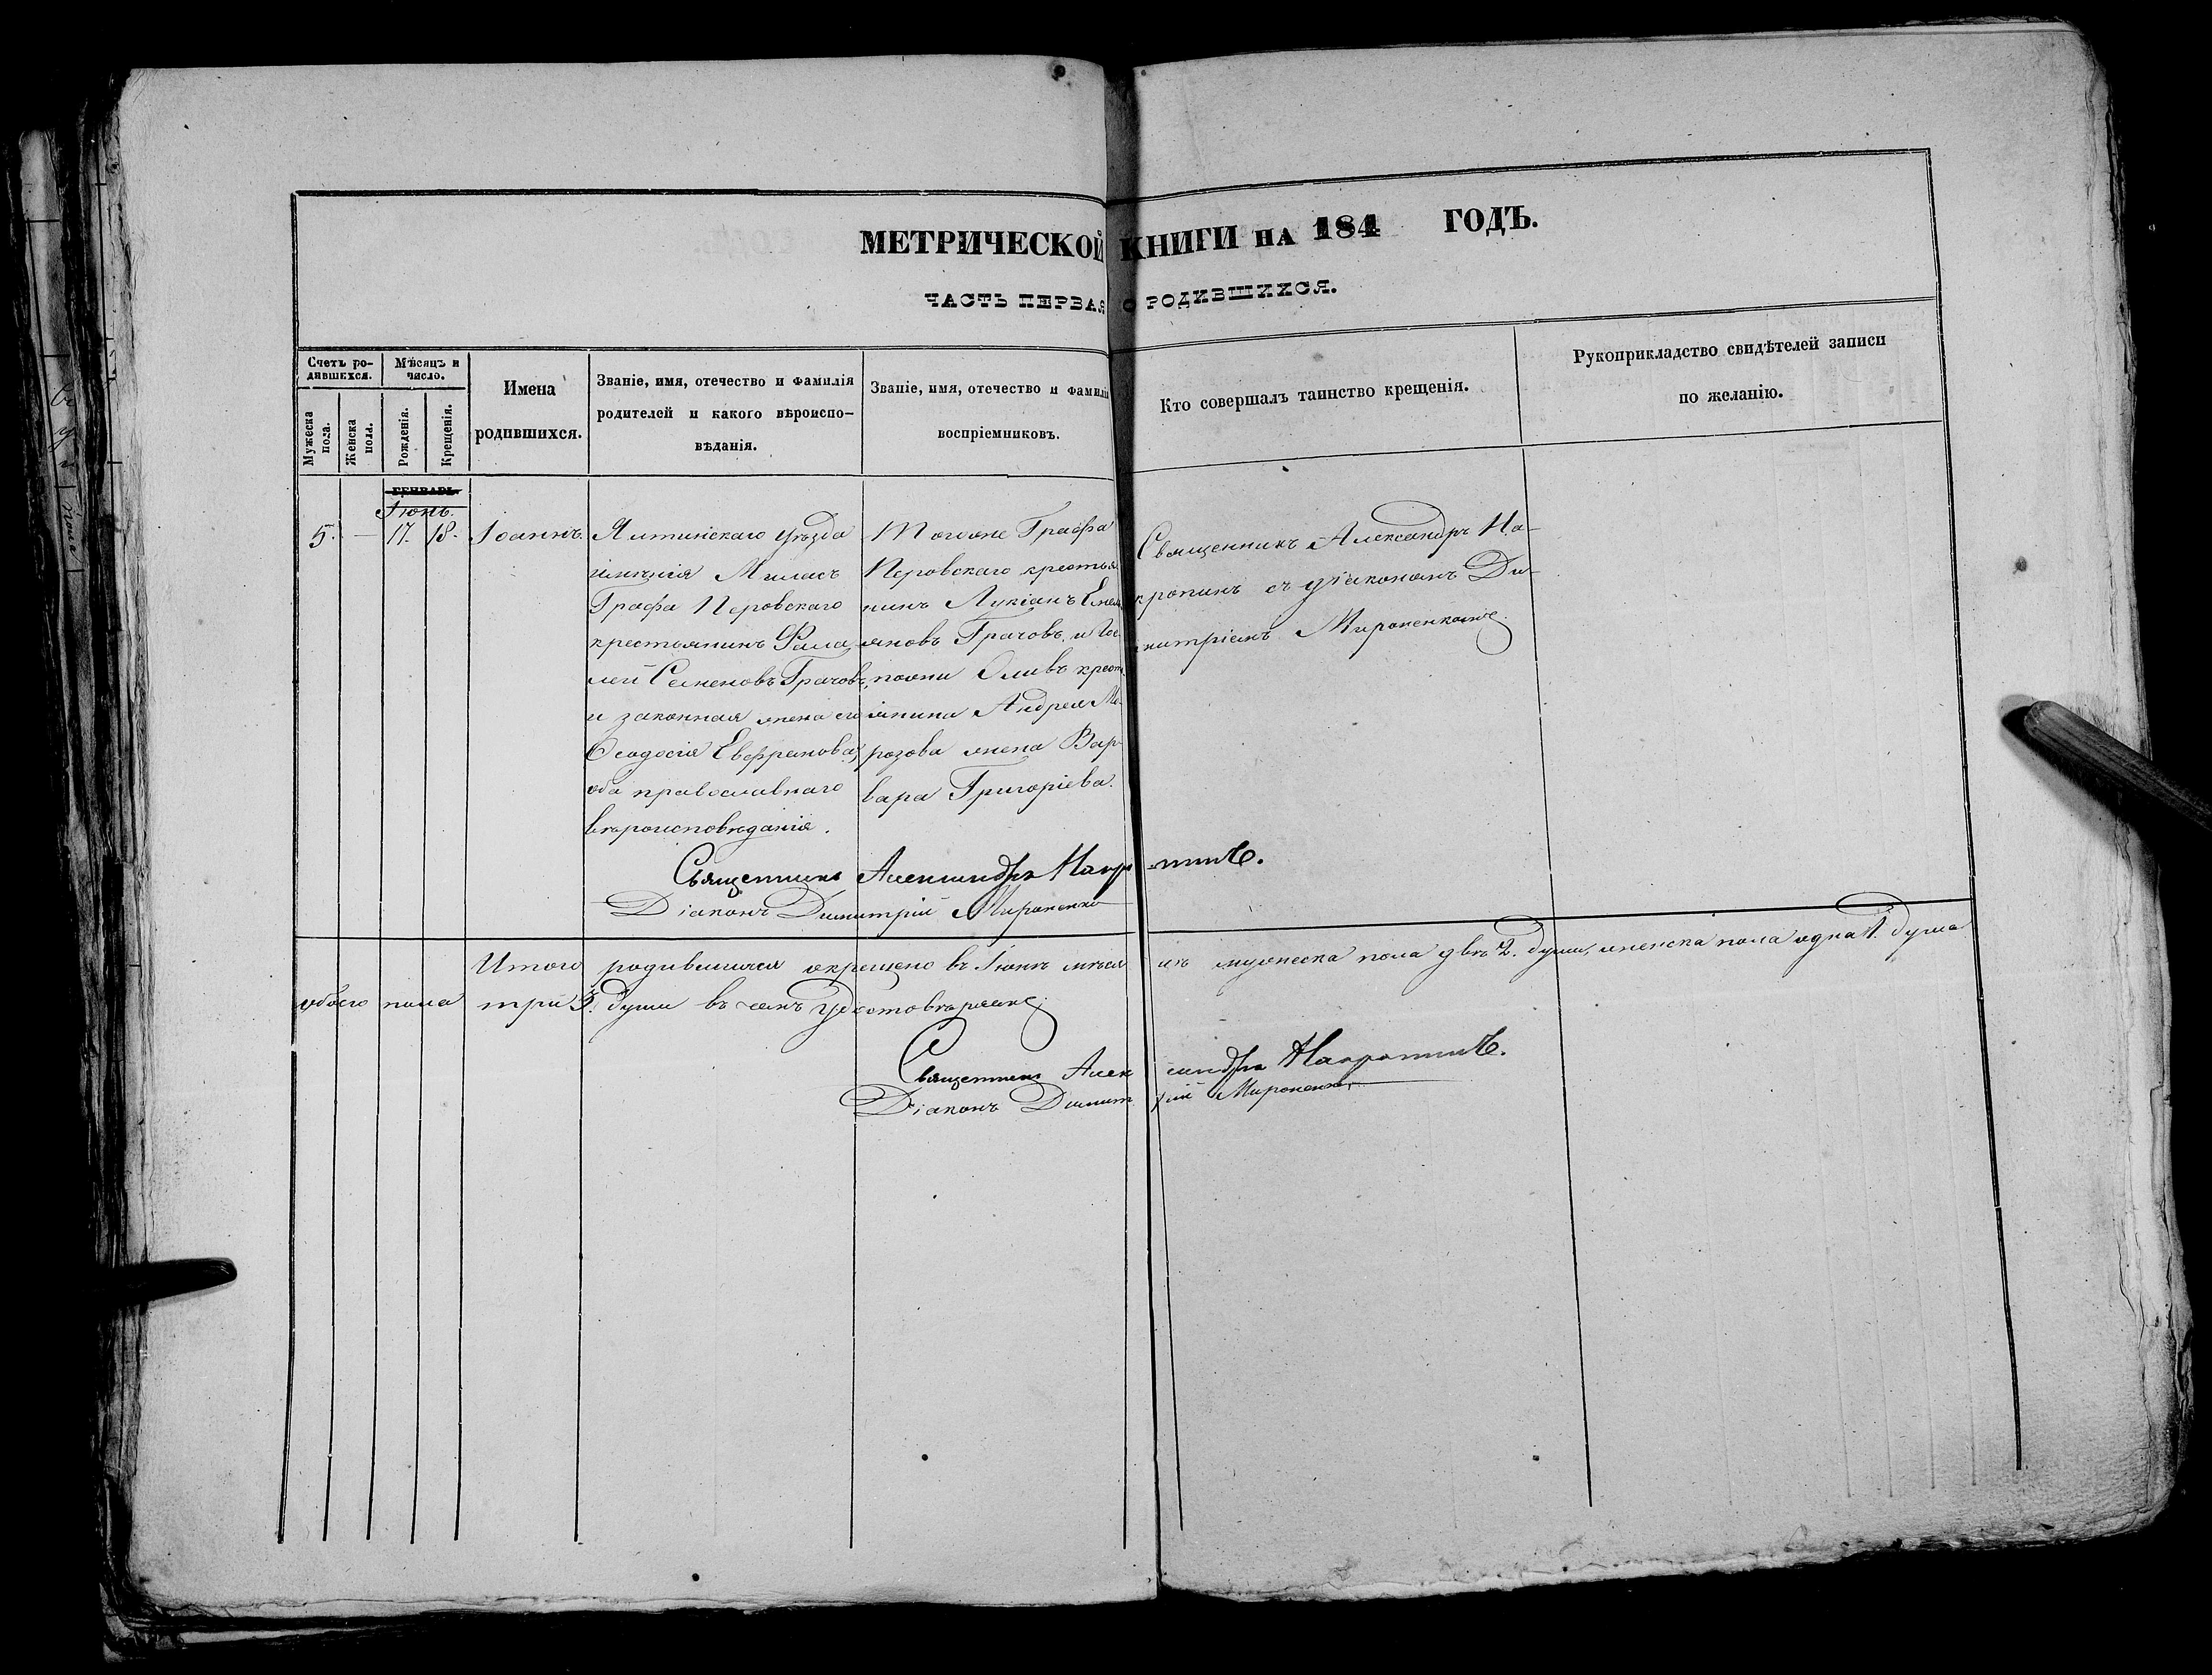 МЕТРИЧЕСКОЙ КНИГИ НА 184 ГОДЪ.
ЧАСТЬ ПЕРВАЯ О РОДИВШИХСЯ.
Счетъ ро-
дившихся.
Мужеска
пола.
Женска
пола.
Мѣсяцъ и
число.
Рожденія.
Крещенія.
Имена
родившихся.
Званіе, имя, отечество и фамилія
родителей и какого вѣроиспо-
вѣданія.
Званіе, имя, отечество и фамилія
воспріемниковъ.
Кто совершалъ таинство крещенія.
Рукоприкладство свидѣтелей записи
по желанію.
ГЕНВАРЬ
Іюнь.
5. — 17. 18. Іоаннъ.
Ялтинскаго уѣзда
имѣнія Мшласъ
Графа Перовскаго
крестьянинъ
Семеновъ Грачовъ,
и законная жена его
Ѳеодосія Евфремова,
оба православнаго
вѣроисповѣданія.
Тогоже Графа
Перовскаго крестья
нинъ Лукіанъ Емел
яновъ Грачовъ, и Гос
пожи Оливъ крест
янина Андрея Мо
розова жена Вар
вара Григоріева.
Священникъ Александръ На-
кропинъ съ діакономъ Ди-
митріемъ Мироненкомъ.
Священникъ Александръ
Діаконъ Димитрій Мироненко
Итого родившихся окрещено въ Іюнѣ мѣсяцѣ мужеска пола двѣ 2. души, женска пола одна 1. душа
обоего пола три 3. души въ чемъ удостовѣряемъ.
Священникъ Александръ
Діаконъ Димитрій Мироненко